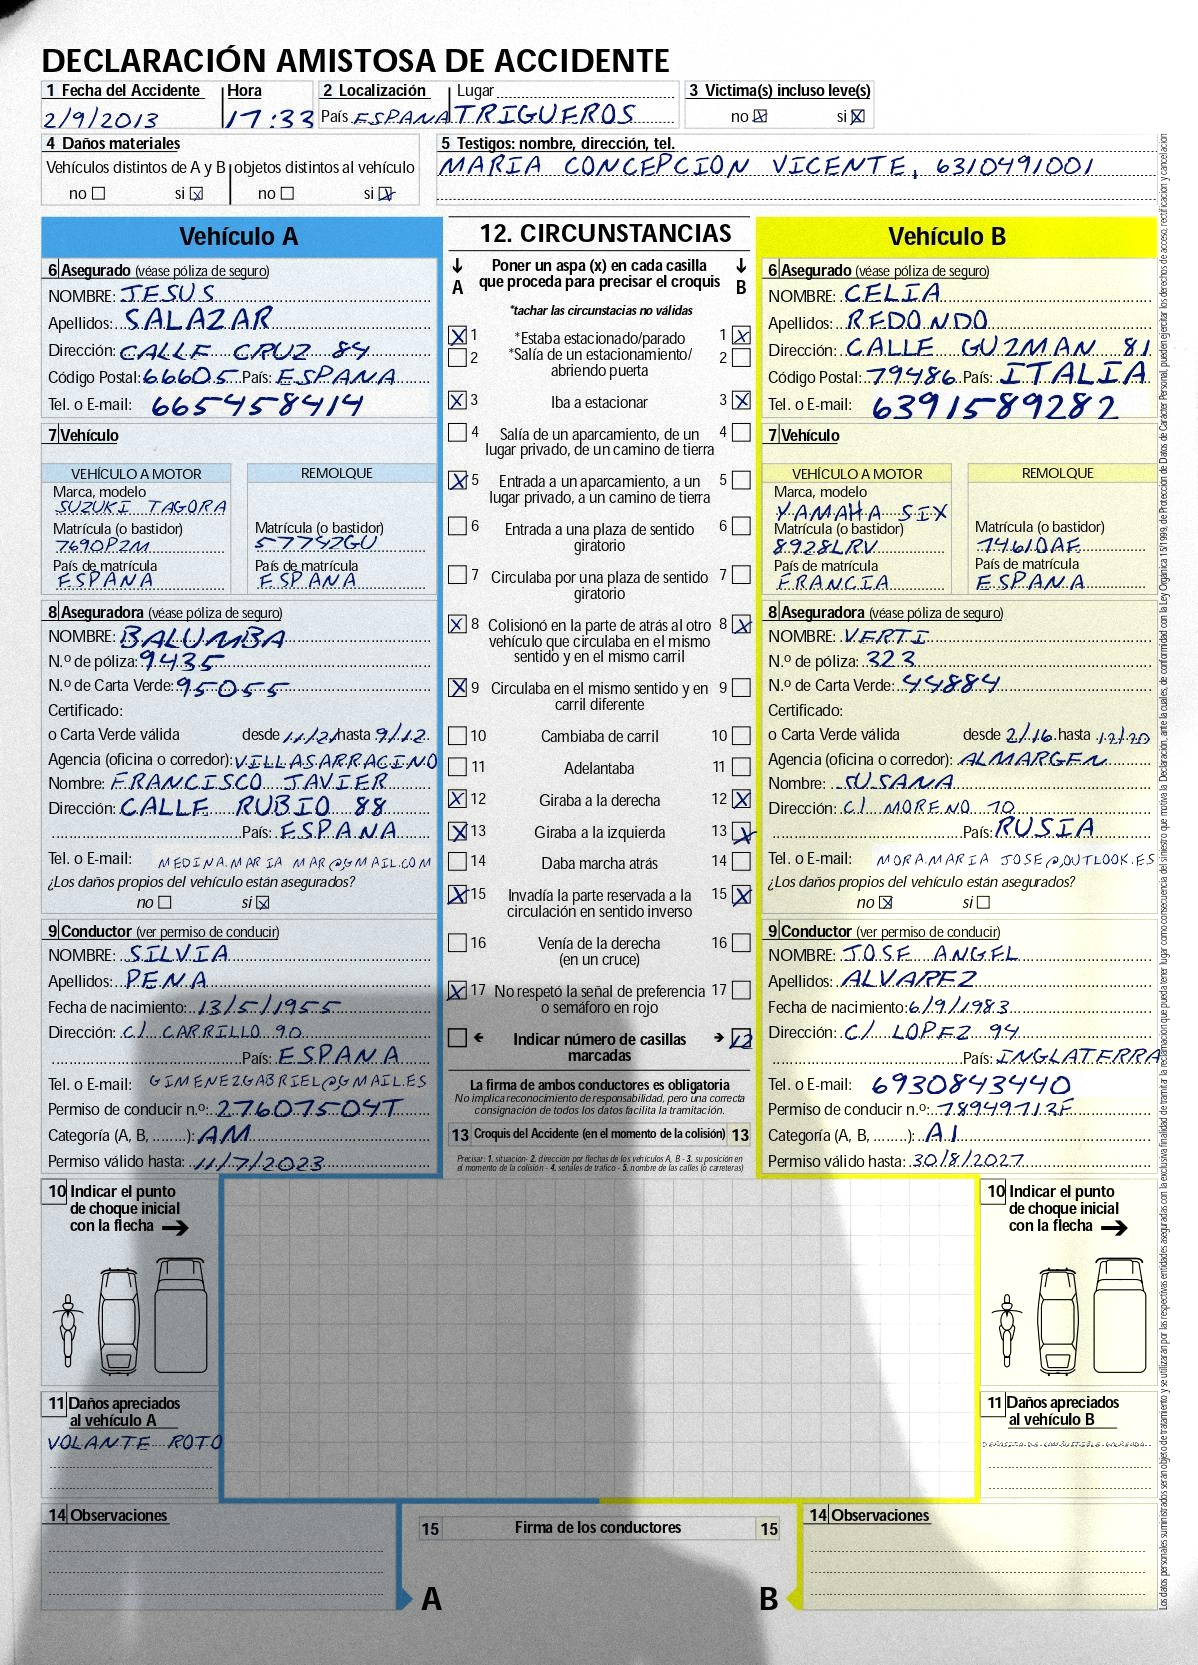 DECLARACIÓN AMISTOSA DE ACCIDENTE
1 Fecha del Accidente Hora 2 Localización Lugar 3 Victima(s) incluso leve(s)
2/9/2013 17:33 País ESPANA TRIGUEROS no si
4 Daños materiales
Vehículos distintos de A y B objetos distintos al vehículo
no si no si
5 Testigos: nombre, dirección, tel.
MARIA CONCEPCION VICENTE, 6310491001
Vehículo A
6 Asegurado (véase póliza de seguro)
NOMBRE: JESUS
Apellidos: SALAZAR
Dirección: CALLE CRUZ 84
Código Postal: 66605 País: ESPANA
Tel. o E-mail: 665458414
7 Vehículo
VEHÍCULO A MOTOR REMOLQUE
Marca, modelo
SUZUKI TAGORA
Matrícula (o bastidor) Matrícula (o bastidor)
7690PZM 57742GU
País de matrícula País de matrícula
ESPANA ESPANA
8 Aseguradora (véase póliza de seguro)
NOMBRE: BALUMBA
N.º de póliza: 9435
N.º de Carta Verde: 95055
Certificado:
o Carta Verde válida desde 11/21 hasta 9/12
Agencia (oficina o corredor): VILLASARRACINO
Nombre: FRANCISCO JAVIER
Dirección: CALLE RUBIO 88
País: ESPANA
Tel. o E-mail: MEDINA.MARIA MAR@GMAIL.COM
¿Los daños propios del vehículo están asegurados?
no si
9 Conductor (ver permiso de conducir)
NOMBRE: SILVIA
Apellidos: PENA
Fecha de nacimiento: 13/5/1955
Dirección: C/ CARRILLO 90
País: ESPANA
Tel. o E-mail: GIMENEZGABRIEL@GMAIL.ES
Permiso de conducir n.º: 27607504T
Categoría (A, B, ........): AM
Permiso válido hasta: 11/7/2023
12. CIRCUNSTANCIAS
A Poner un aspa (x) en cada casilla B
que proceda para precisar el croquis
*tachar las circunstacias no válidas
1 *Estaba estacionado/parado 1
2 *Salía de un estacionamiento/ 2
abriendo puerta
3 Iba a estacionar 3
4 Salía de un aparcamiento, de un 4
lugar privado, de un camino de tierra
5 Entrada a un aparcamiento, a un 5
lugar privado, a un camino de tierra
6 Entrada a una plaza de sentido 6
giratorio
7 Circulaba por una plaza de sentido 7
giratorio
8 Colisionó en la parte de atrás al otro 8
vehículo que circulaba en el mismo
sentido y en el mismo carril
9 Circulaba en el mismo sentido y en 9
carril diferente
10 Cambiaba de carril 10
11 Adelantaba 11
12 Giraba a la derecha 12
13 Giraba a la izquierda 13
14 Daba marcha atrás 14
15 Invadía la parte reservada a la 15
circulación en sentido inverso
16 Venía de la derecha 16
(en un cruce)
17 No respetó la señal de preferencia 17
o semáforo en rojo
Indicar número de casillas 12
marcadas
La firma de ambos conductores es obligatoria
No implica reconocimiento de responsabilidad, pero una correcta
consignación de todos los datos facilita la tramitación.
13 Croquis del Accidente (en el momento de la colisión) 13
Precisar: 1. situación- 2. dirección por flechas de los vehículos A, B - 3. su posición en
el momento de la colisión - 4. señales de tráfico - 5. nombre de las calles (o carreteras)
Vehículo B
6 Asegurado (véase póliza de seguro)
NOMBRE: CELIA
Apellidos: REDONDO
Dirección: CALLE GUZMAN 81
Código Postal: 79486 País: ITALIA
Tel. o E-mail: 6391589282
7 Vehículo
VEHÍCULO A MOTOR REMOLQUE
Marca, modelo
YAMAHA SIX
Matrícula (o bastidor) Matrícula (o bastidor)
8928LRV 7461DAE
País de matrícula País de matrícula
FRANCIA ESPANA
8 Aseguradora (véase póliza de seguro)
NOMBRE: VERTI
N.º de póliza: 323
N.º de Carta Verde: 44884
Certificado:
o Carta Verde válida desde 2/16 hasta 12/20
Agencia (oficina o corredor): ALMARGEN
Nombre: SUSANA
Dirección: C/ MORENO 70
País: RUSIA
Tel. o E-mail: MORA.MARIA JOSE@OUTLOOK.ES
¿Los daños propios del vehículo están asegurados?
no si
9 Conductor (ver permiso de conducir)
NOMBRE: JOSE ANGEL
Apellidos: ALVAREZ
Fecha de nacimiento: 6/9/1983
Dirección: C/ LOPEZ 94
País: INGLATERRA
Tel. o E-mail: 6930843440
Permiso de conducir n.º: 78949713F
Categoría (A, B, ........): A1
Permiso válido hasta: 30/8/2027
10 Indicar el punto
de choque inicial
con la flecha
11 Daños apreciados
al vehículo A
VOLANTE ROTO
10 Indicar el punto
de choque inicial
con la flecha
11 Daños apreciados
al vehículo B
14 Observaciones
15 Firma de los conductores 15
A B
14 Observaciones
Los datos personales suministrados serán objeto de tratamiento y se utilizaran por las respectivas entidades aseguradas con la exclusiva finalidad de tramitar la reclamación que pueda tener lugar como consecuencia del siniestro que motiva la Declaración, ante la cuales, de conformidad con la Ley Orgánica 15/1999, de Protección de Datos de Carácter Personal, pueden ejercitar los derechos de acceso, rectificación y cancelación